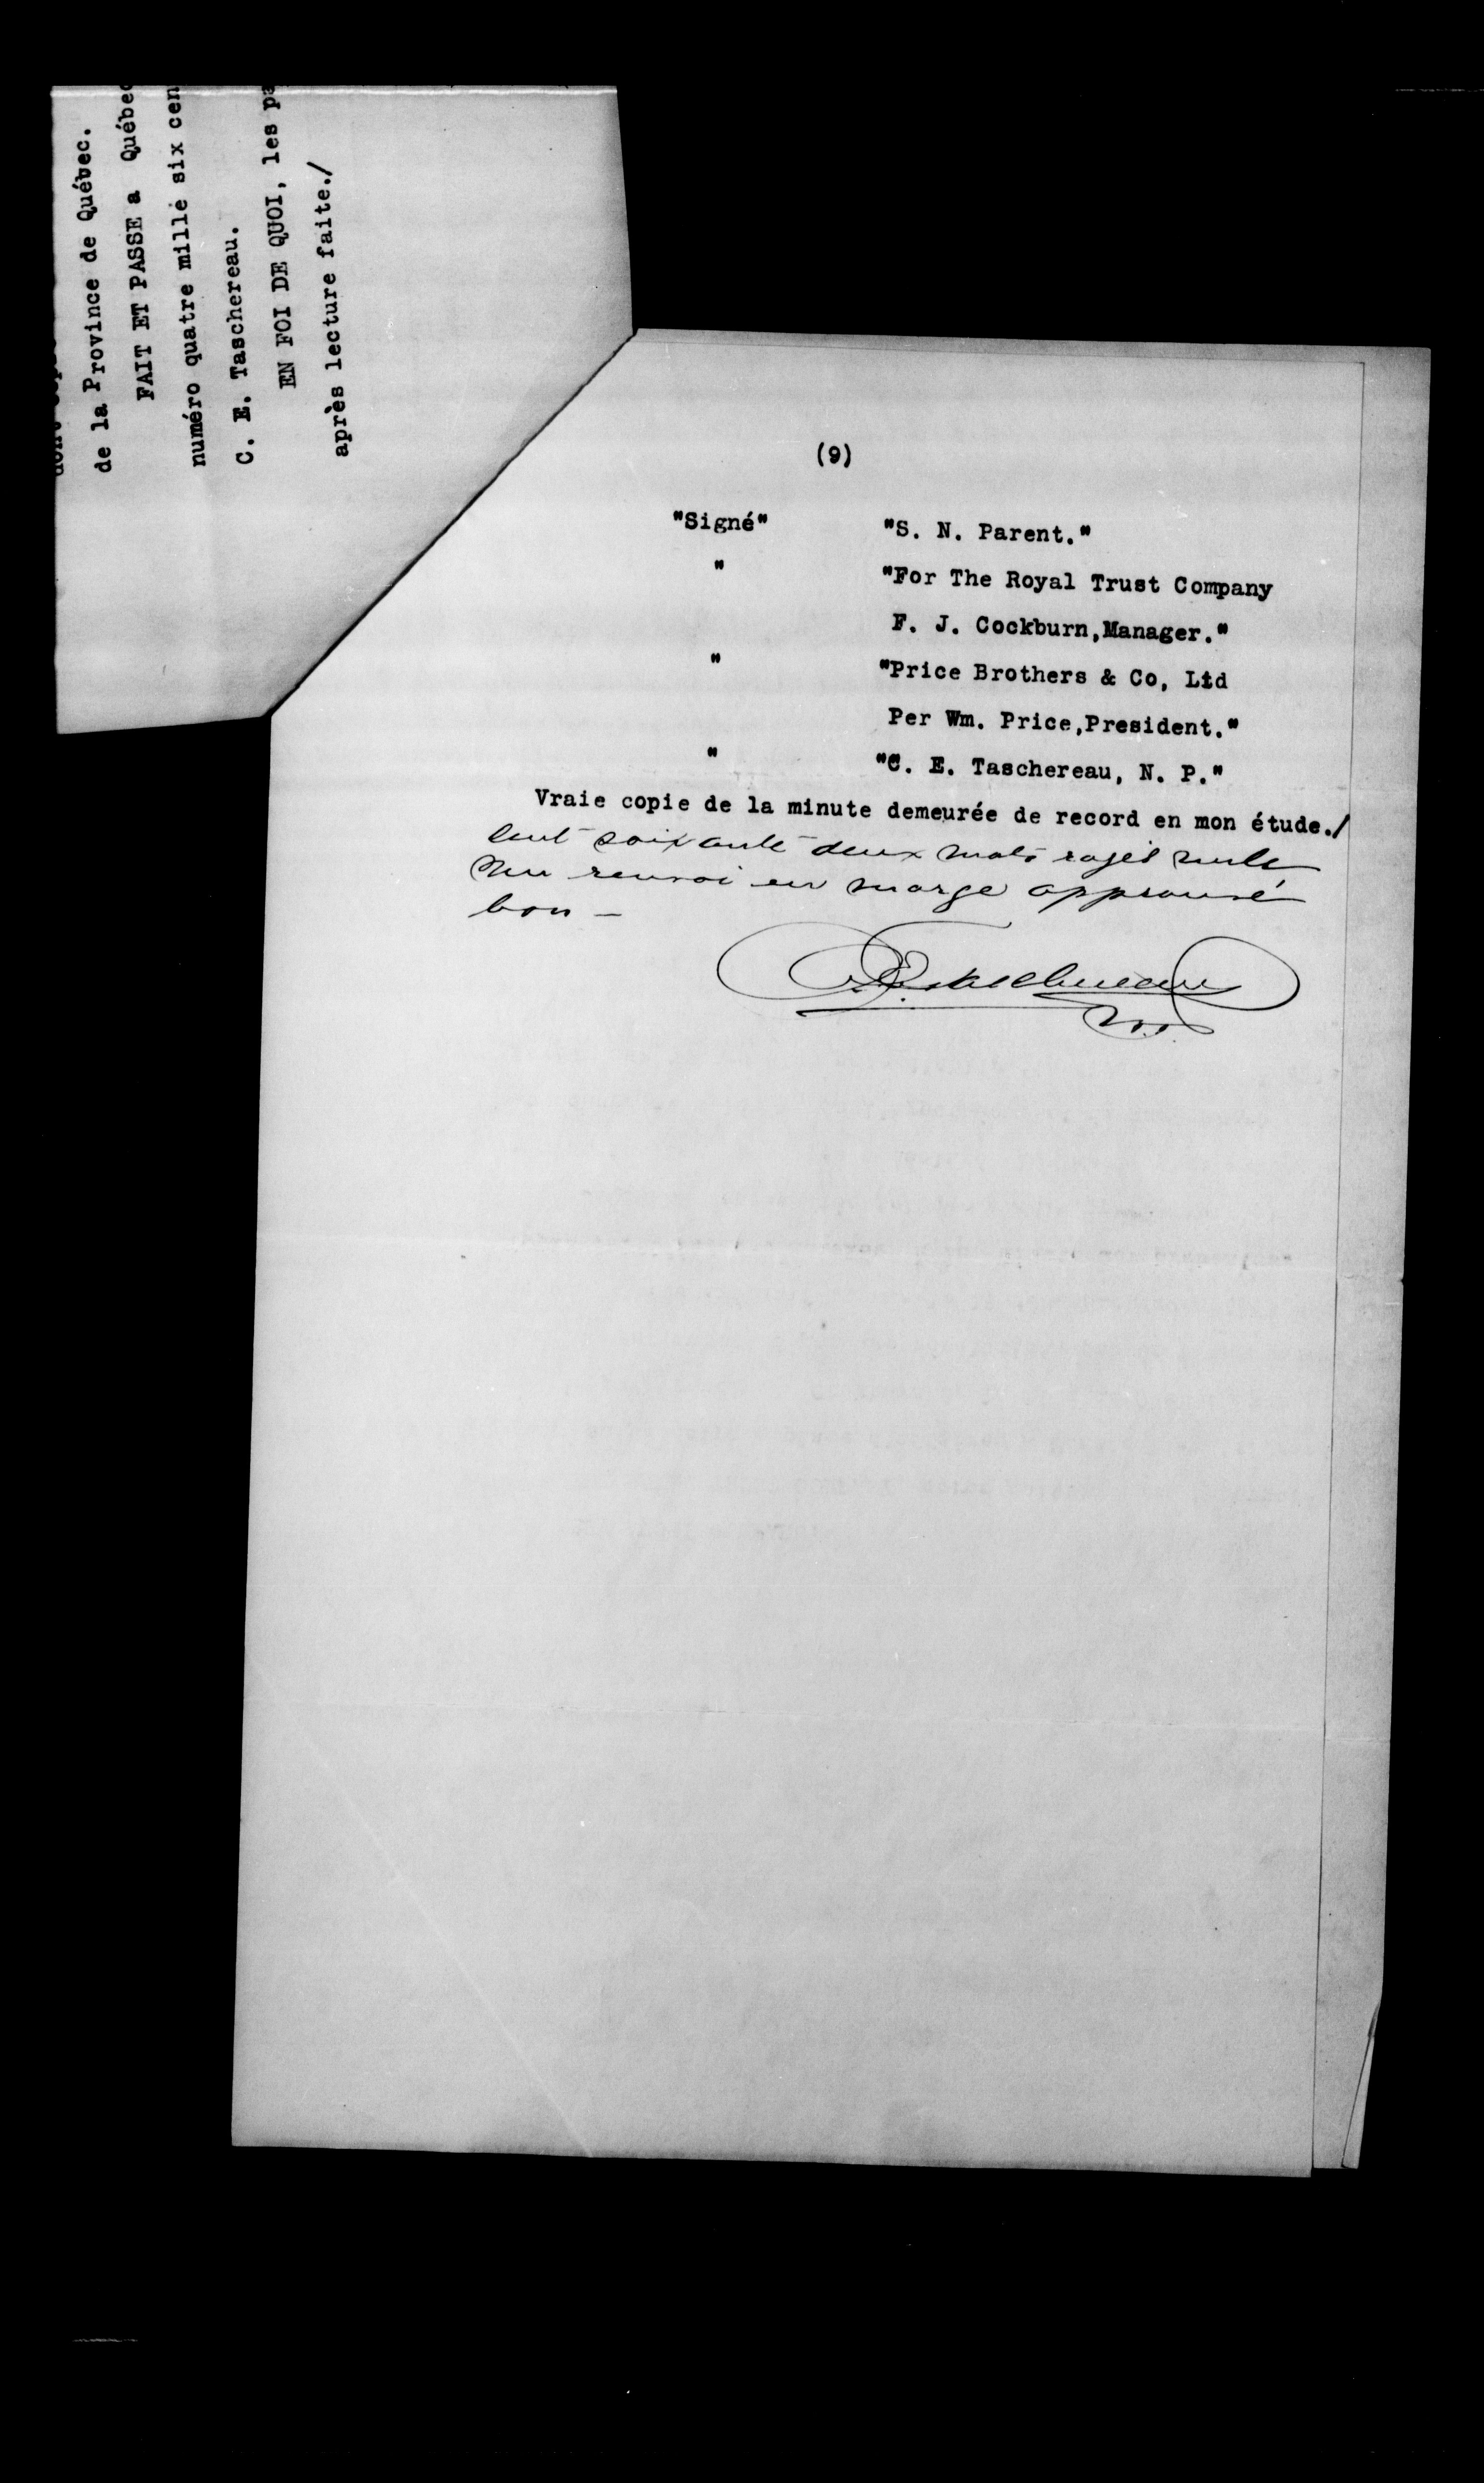 de la Province de Québec.
FAIT ET PASSE a Québec
numéro quatre mille six cen
C. E. Taschereau.
EN FOI DE QUOI, les pa
après lecture faite./
(9)
"Signé" "S. N. Parent."
" "For The Royal Trust Company
F. J. Cockburn,Manager."
" "Price Brothers & Co, Ltd
Per Wm. Price,President."
" "C. E. Taschereau, N. P."
Vraie copie de la minute demeurée de record en mon étude./
Cent soixante deux mots rayés nuls
Un renvoi en marge approuvé
bon —
C. E. Taschereau
N.P.